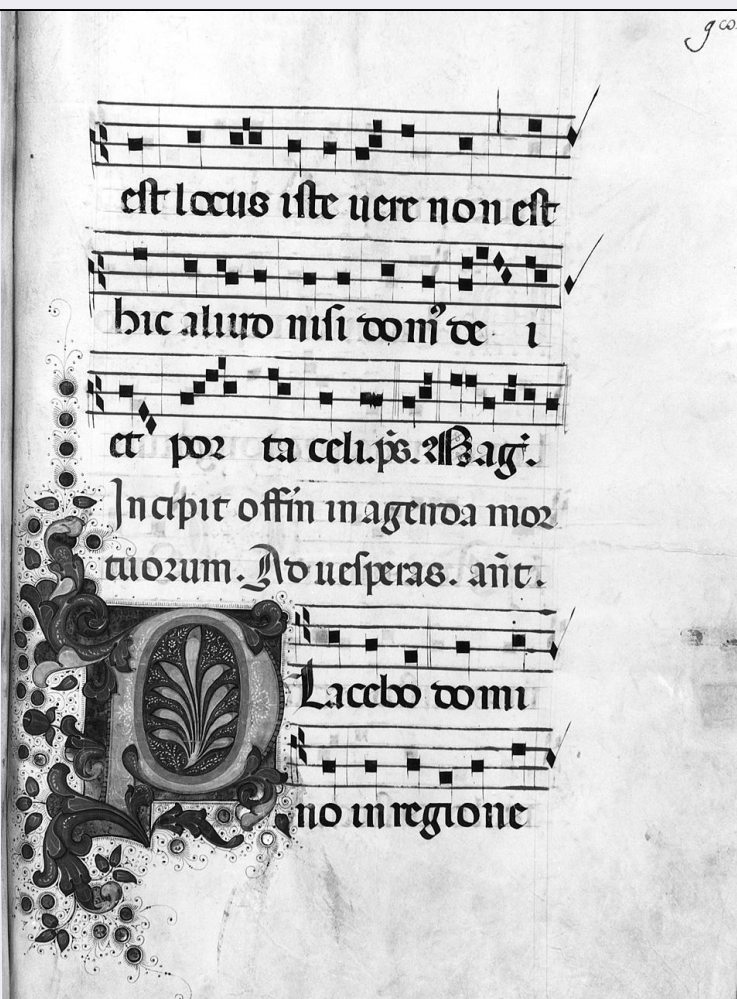 est locus iste uere non est
hic aliud nisi dom⁹ de i
et por ta celi. ps. Mag̃.
Incipit offm̄ in agenda mor
tuorum. Ad uesperas. añt.
PLacebo domi
no in regione